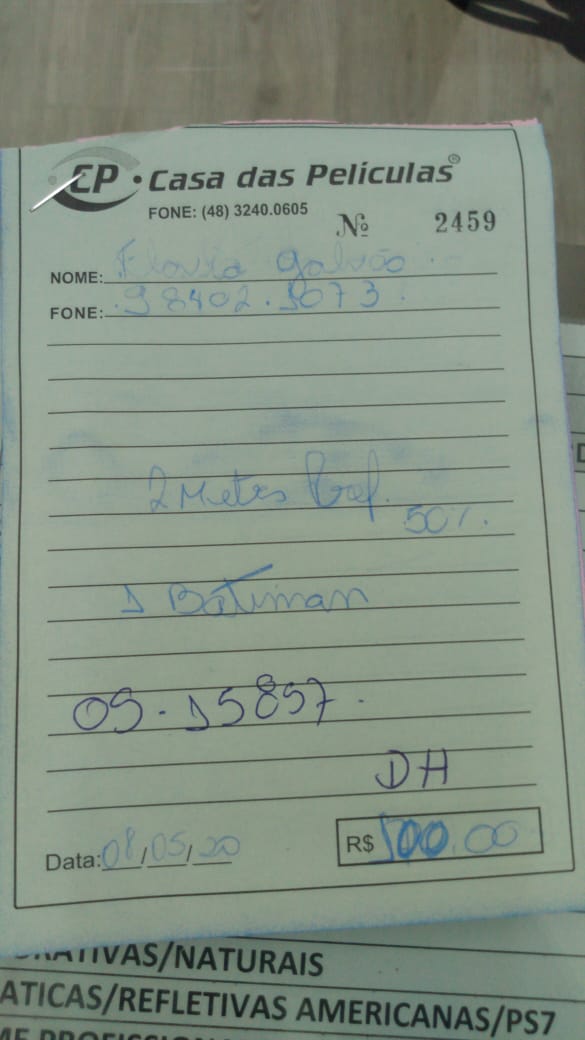 CP • Casa das Películas®
FONE: (48) 3240.0605
Nº 2459
NOME: Flavia Galvão
FONE: 98402.1073
2 Metros Prof.
50%.
1 Batiman
OS-15857.
DH
Data: 08/05/20
R$ 100,00
RATIVAS/NATURAIS
ATICAS/REFLETIVAS AMERICANAS/PS7